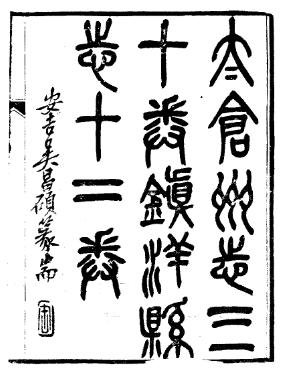 太倉州志三
十卷鎮洋縣
志十二卷
安吉吳昌碩篆耑